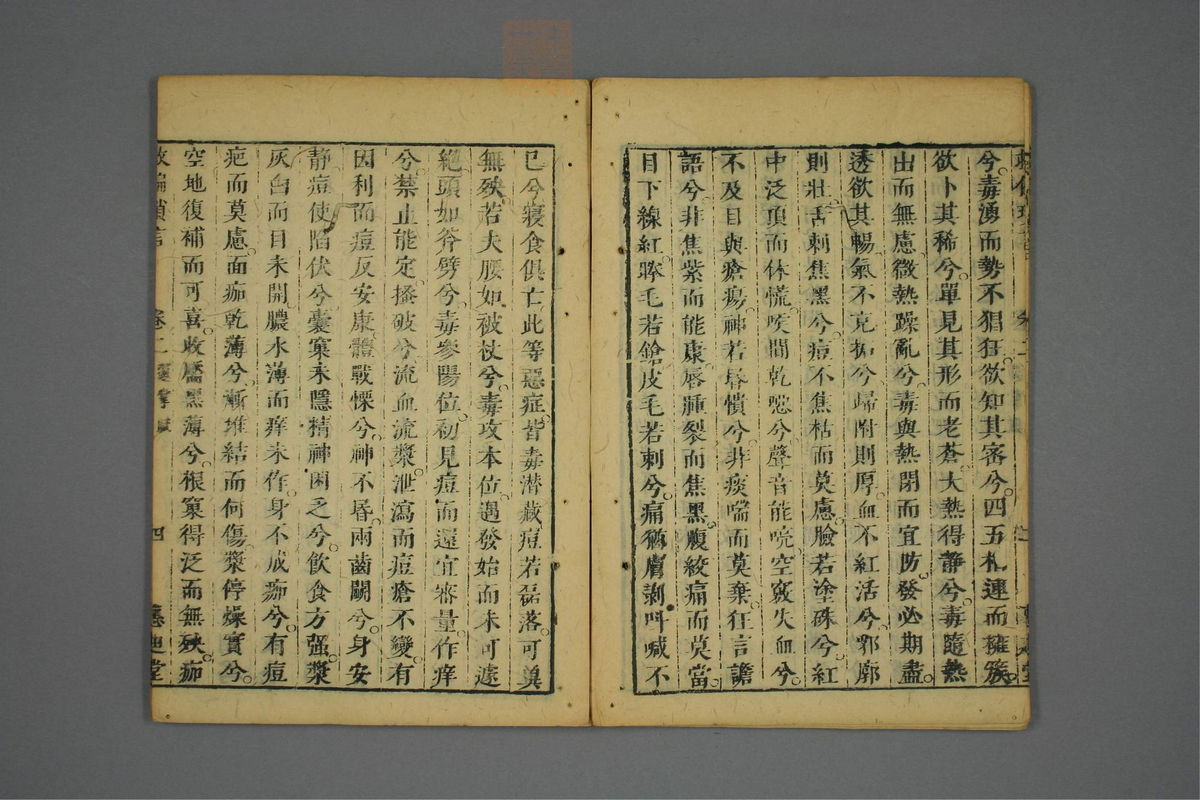 兮毒湧而勢不猖狂欲知其密兮四五札連而擁簇
欲卜其稀兮單見其形而老蒼大熱得靜兮毒隨熱
出而無慮微熱躁亂兮毒與熱閉而宜防發必期盡
透欲其暢氣不克拓兮歸附則厚血不紅活兮郛廓
則壯舌刺焦黑兮痘不焦枯而莫慮臉若塗硃兮紅
中泛頂而休慌喉間乾噁兮聲音能吮空竅失血兮
不及目與瘡瘍神若昏憒兮非痰喘而莫棄狂言譫
語兮非焦紫而能康唇腫裂而焦黑腹絞痛而莫當
目下線紅眸毛若鎗皮毛若刺兮痛猶膚剝叫喊不
已兮寢食俱亡此等惡症皆毒潛藏痘若磊落可冀
無殃若夫腰如被杖兮毒攻本位遇發始而未可遽
絕頭如斧劈兮毒參陽位初見痘而還宜審量作痒
兮禁止能定搔破兮流血流漿泄瀉而痘瘡不變有
因利而痘反安康體戰慄兮神不昏兩齒鬬兮身安
靜痘使陷伏兮囊窠未隱精神困乏兮飲食方强漿
灰白而目未開膿水薄而痒未作身不成痂兮有痘
疤而莫慮面痂乾薄兮漸堆結而何傷漿停燥實兮
空地復補而可喜收靨黑薄兮根窠得泛而無殃痂
卷二
四